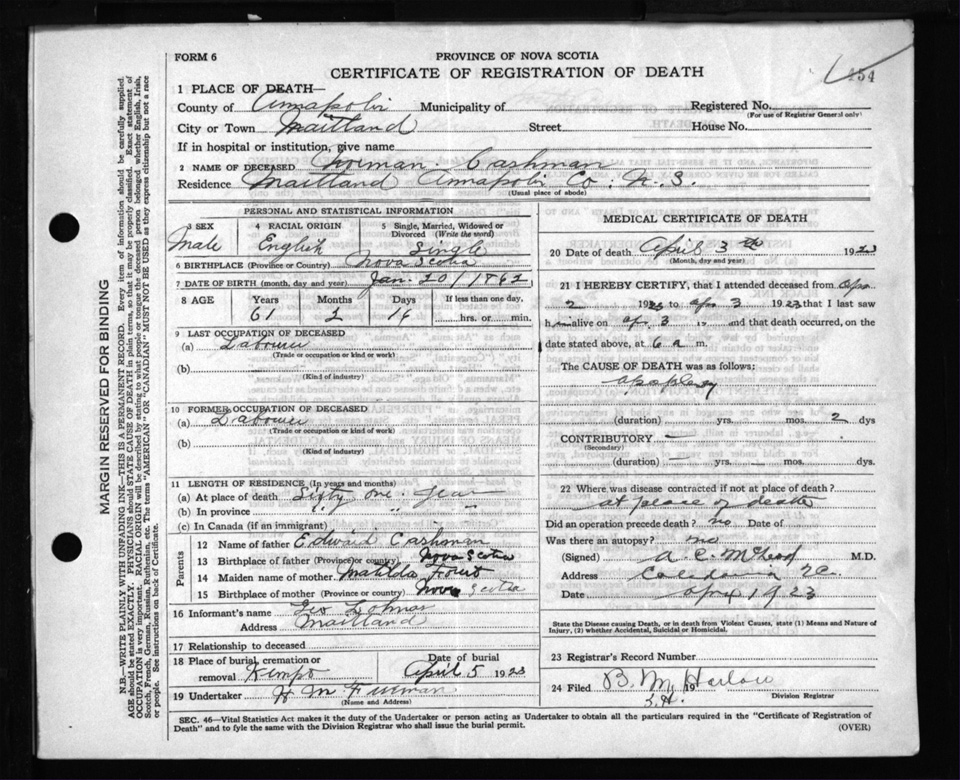 FORM 6
PROVINCE OF NOVA SCOTIA
CERTIFICATE OF REGISTRATION OF DEATH
454
1 PLACE OF DEATH—
County of Annapolis Municipality of Registered No.
(For use of Registrar General only)
City or Town Maitland Street House No.
If in hospital or institution, give name
2 NAME OF DECEASED Norman Cashman
Residence Maitland Annapolis Co. N.S.
(Usual place of abode)
PERSONAL AND STATISTICAL INFORMATION
3 SEX Male
4 RACIAL ORIGIN English
5 Single, Married, Widowed or Divorced (Write the word) Single
6 BIRTHPLACE (Province or Country) Nova Scotia
7 DATE OF BIRTH (month, day and year) Jan. 20/1862
8 AGE Years Months Days If less than one day,
61 2 14 hrs. or min.
9 LAST OCCUPATION OF DECEASED
(a) Labourer
(Trade or occupation or kind of work)
(b)
(Kind of industry)
10 FORMER OCCUPATION OF DECEASED
(a) Labourer
(Trade or occupation or kind of work)
(b)
(Kind of industry)
11 LENGTH OF RESIDENCE (In years and months)
(a) At place of death Sixty one year
(b) In province " " "
(c) In Canada (if an immigrant)
Parents
12 Name of father Edward Cashman
13 Birthplace of father (Province or country) Nova Scotia
14 Maiden name of mother Matilda
15 Birthplace of mother (Province or country) Nova Scotia
16 Informant's name Geo
Address Maitland
17 Relationship to deceased
18 Place of burial, cremation or removal Kempt
Date of burial April 5 1923
19 Undertaker H M
(Name and Address)
MEDICAL CERTIFICATE OF DEATH
20 Date of death April 3 1923
(Month, day and year)
21 I HEREBY CERTIFY, that I attended deceased from Apr
2 1923 to Apr 3 1923 that I last saw
him alive on Apr 3 19 and that death occurred, on the
date stated above, at 6 a m.
The CAUSE OF DEATH was as follows:
apoplexy
(duration) yrs. mos. 2 dys
CONTRIBUTORY —
(Secondary)
(duration) — yrs — mos. dys.
22 Where was disease contracted if not at place of death?
at place of death
Did an operation precede death? no Date of
Was there an autopsy? no
(Signed) A. C. McLeod M.D.
Address Caledonia
Date Apr 1923
State the Disease causing Death, or in death from Violent Causes, state (1) Means and Nature of
Injury, (2) whether Accidental, Suicidal or Homicidal.
23 Registrar's Record Number
24 Filed 19 B. M. Harlow
Division Registrar
SEC. 46—Vital Statistics Act makes it the duty of the Undertaker or person acting as Undertaker to obtain all the particulars required in the "Certificate of Registration of
Death" and to fyle the same with the Division Registrar who shall issue the burial permit. (OVER)
MARGIN RESERVED FOR BINDING
N.B.—WRITE PLAINLY WITH UNFADING INK—THIS IS A PERMANENT RECORD. Every item of information should be carefully supplied.
AGE should be stated EXACTLY. PHYSICIANS should STATE CAUSE OF DEATH in plain terms, so that it may be properly classified. Exact statement of
OCCUPATION is very important. RACIAL ORIGIN will be described by stating to what people or tongue the deceased person belonged whether English, Irish,
Scotch, French, German, Russian, Ruthenian, etc. The terms "AMERICAN" OR "CANADIAN" MUST NOT BE USED as they express citizenship but not a race
or people. See instructions on back of Certificate.